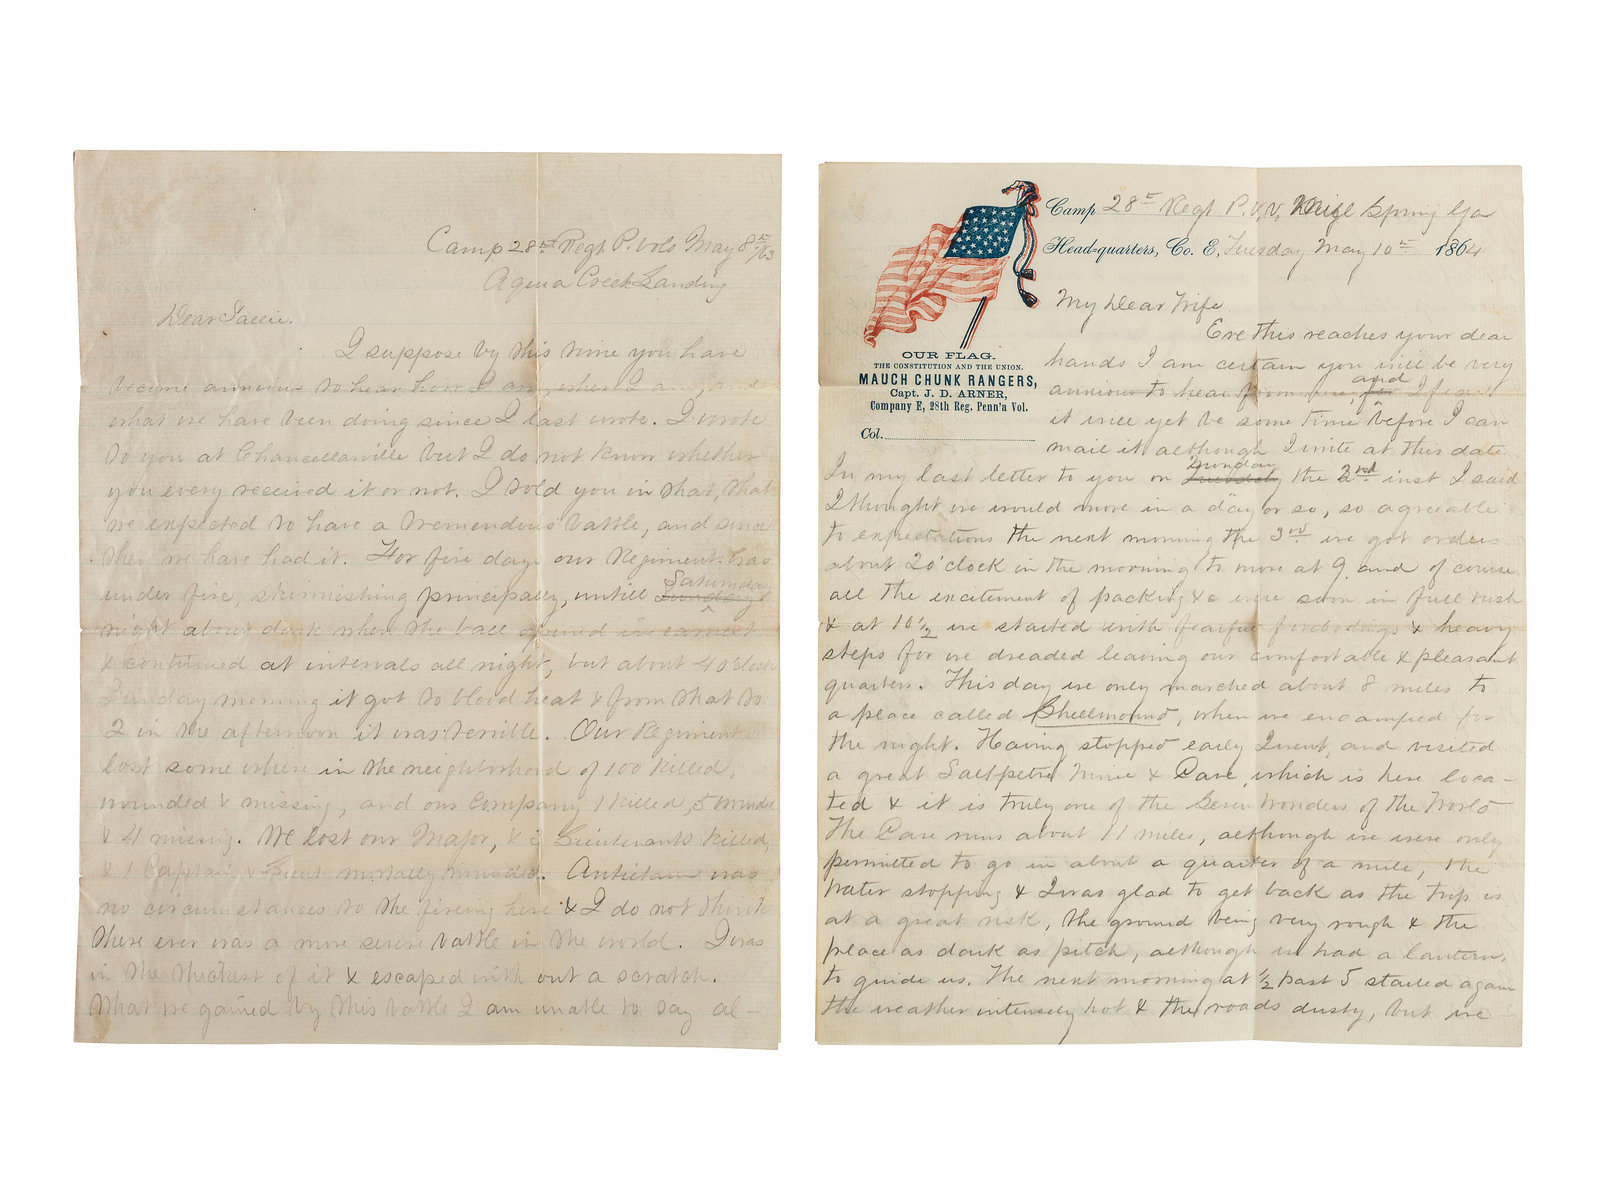 Camp 28th Regt P. Vols May 8th /63
Aquia Creek Landing
Dear Sallie.
I suppose by this time you have
become anxious to hear how I am, where I am, and
what we have been doing since I last wrote. I wrote
to you at Chancellarville but I do not know whether
you every received it or not. I told you in that, that
we expected to have a tremendous battle, and since
then we have had it. For five days our Regiment was
under fire, skirmishing principally, untill Sunday Saturday
night about dark when the ball opened in earnest
& continued at intervals all night, but about 4 o'clock
Sunday morning it got to blood heat & from that to
2 in the afternoon it was terrible. Our Regiment
lost some where in the neighborhood of 100 killed,
wounded & missing, and our Company 1 killed, 5 wounded
& 4 missing. We lost our Major, & 2 Lieutenants killed,
& 1 Captain & Lieut mortally wounded. Antietam was
no circumstances to the fireing here & I do not think
there ever was a more severe battle in the world. I was
in the thickest of it & escaped with out a scratch.
What we gained by this battle I am unable to say al-
Camp 28th Regt P. V. V. Spring Ga
Head-quarters, Co. E, Tuesday May 10th 1864
OUR FLAG.
THE CONSTITUTION AND THE UNION.
MAUCH CHUNK RANGERS,
Capt. J. D. ARNER,
Company E, 28th Reg. Penn'a Vol.
Col.
My Dear Wife
Ere this reaches your dear
hands I am certain you will be very
anxious to hear from me, for and I fear
it will yet be some time before I can
mail it although I write at this date
In my last letter to you on Tuesday Monday the 2nd inst I said
I thought we would move in a day or so, so agreeable
to expectations the next morning the 3rd we got orders
about 2 o'clock in the morning to move at 9 and of course
all the excitement of packing &c were soon in full rush
& at 10 1/2 we started with fearful forebodings & heavy
steps for we dreaded leaving our comfortable & pleasant
quarters. This day we only marched about 8 miles to
a place called Shellmound, when we encamped for
the night. Having stopped early I went, and visited
a great Saltpetre Mine & Cave, which is here loca-
ted & it is truly one of the Seven Wonders of the World
The Cave runs about 11 miles, although we were only
permitted to go in about a quarter of a mile, the
water stopping & I was glad to get back as the trip is
at a great risk, the ground being very rough & the
place as dark as pitch, although we had a lantern,
to guide us. The next morning at 1/2 past 5 started again
the weather intensely hot & the roads dusty, but we